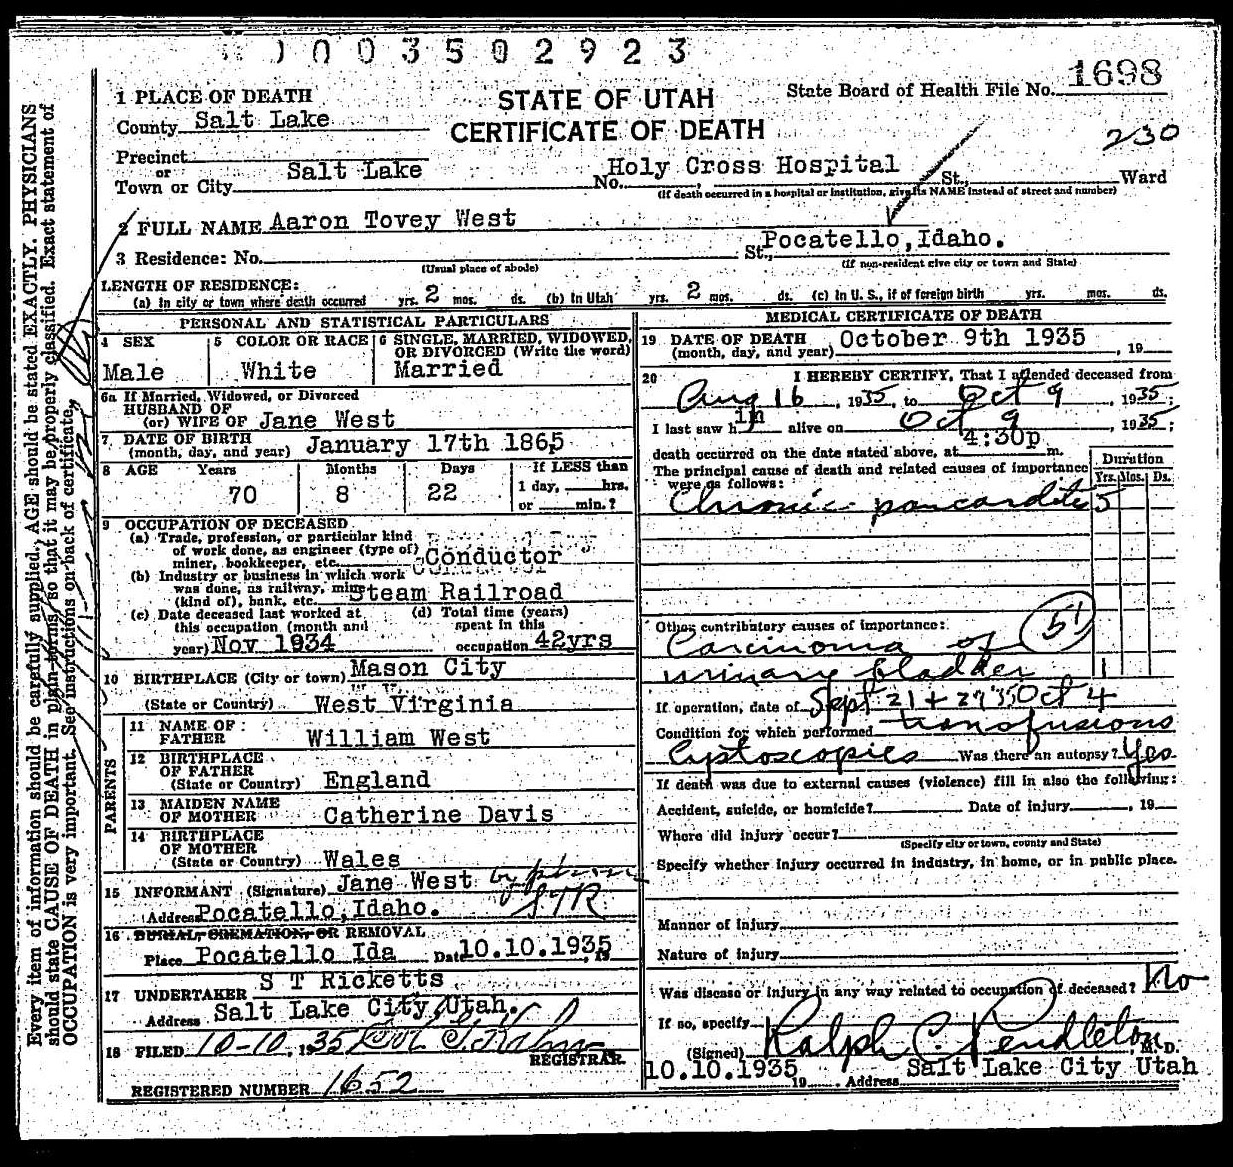 0003502923
1 PLACE OF DEATH
STATE OF UTAH
State Board of Health File No. 1698
County Salt Lake
CERTIFICATE OF DEATH
230
Precinct
or
Town or City Salt Lake No. Holy Cross Hospital St., Ward
(If death occurred in a hospital or institution, give its NAME instead of street and number)
2 FULL NAME Aaron Tovey West
3 Residence: No. St., Pocatello, Idaho.
(Usual place of abode) (If non-resident give city or town and State)
LENGTH OF RESIDENCE:
(a) In city or town where death occurred yrs. 2 mos. ds. (b) In Utah yrs. 2 mos. ds. (c) In U. S., if of foreign birth yrs. mos. ds.
PERSONAL AND STATISTICAL PARTICULARS
4 SEX
Male
5 COLOR OR RACE
White
6 SINGLE, MARRIED, WIDOWED,
OR DIVORCED (Write the word)
Married
6a If Married, Widowed, or Divorced
HUSBAND OF
(or) WIFE OF Jane West
7 DATE OF BIRTH
(month, day, and year) January 17th 1865
8 AGE Years Months Days If LESS than
70 8 22 1 day, hrs.
or min.?
9 OCCUPATION OF DECEASED
(a) Trade, profession, or particular kind
of work done, as engineer (type of)
miner, bookkeeper, etc. Conductor
(b) Industry or business in which work
was done, as railway, mine
(kind of), bank, etc. Steam Railroad
(c) Date deceased last worked at
this occupation (month and
year) Nov 1934
(d) Total time (years)
spent in this
occupation 42yrs
10 BIRTHPLACE (City or town) Mason City
(State or Country) West Virginia
PARENTS
11 NAME OF
FATHER William West
12 BIRTHPLACE
OF FATHER
(State or Country) England
13 MAIDEN NAME
OF MOTHER Catherine Davis
14 BIRTHPLACE
OF MOTHER
(State or Country) Wales
15 INFORMANT (Signature) Jane West by phone
STR
Address Pocatello, Idaho.
16 BURIAL, CREMATION, OR REMOVAL
Place Pocatello Ida Date 10.10.1935, 19
17 UNDERTAKER S T Ricketts
Address Salt Lake City Utah.
18 FILED 10-10, 1935
REGISTRAR.
REGISTERED NUMBER 1652
MEDICAL CERTIFICATE OF DEATH
19 DATE OF DEATH
(month, day, and year) October 9th 1935, 19
20 I HEREBY CERTIFY, That I attended deceased from
Aug 16, 1935, to Oct 9, 1935;
I last saw him alive on Oct 9, 1935;
death occurred on the date stated above, at 4:30p m.
The principal cause of death and related causes of importance
were as follows:
Duration
Yrs. Mos. Ds.
Chronic pancarditis 5
Other contributory causes of importance:
51
Carcinoma of
urinary bladder 1
If operation, date of Sept 21 + 27 '35 Oct 4
Condition for which performed transfusions
Cystoscopies Was there an autopsy? Yes
If death was due to external causes (violence) fill in also the following:
Accident, suicide, or homicide? Date of injury, 19
Where did injury occur?
(Specify city or town, county and State)
Specify whether injury occurred in industry, in home, or in public place.
Manner of injury
Nature of injury
Was disease or injury in any way related to occupation of deceased? No
If so, specify
(Signed) Ralph C. Pendleton, M. D.
10.10.1935 19 Address Salt Lake City Utah
Every item of information should be carefully supplied. AGE should be stated EXACTLY. PHYSICIANS
should state CAUSE OF DEATH in plain terms, so that it may be properly classified. Exact statement of
OCCUPATION is very important. See instructions on back of certificate.